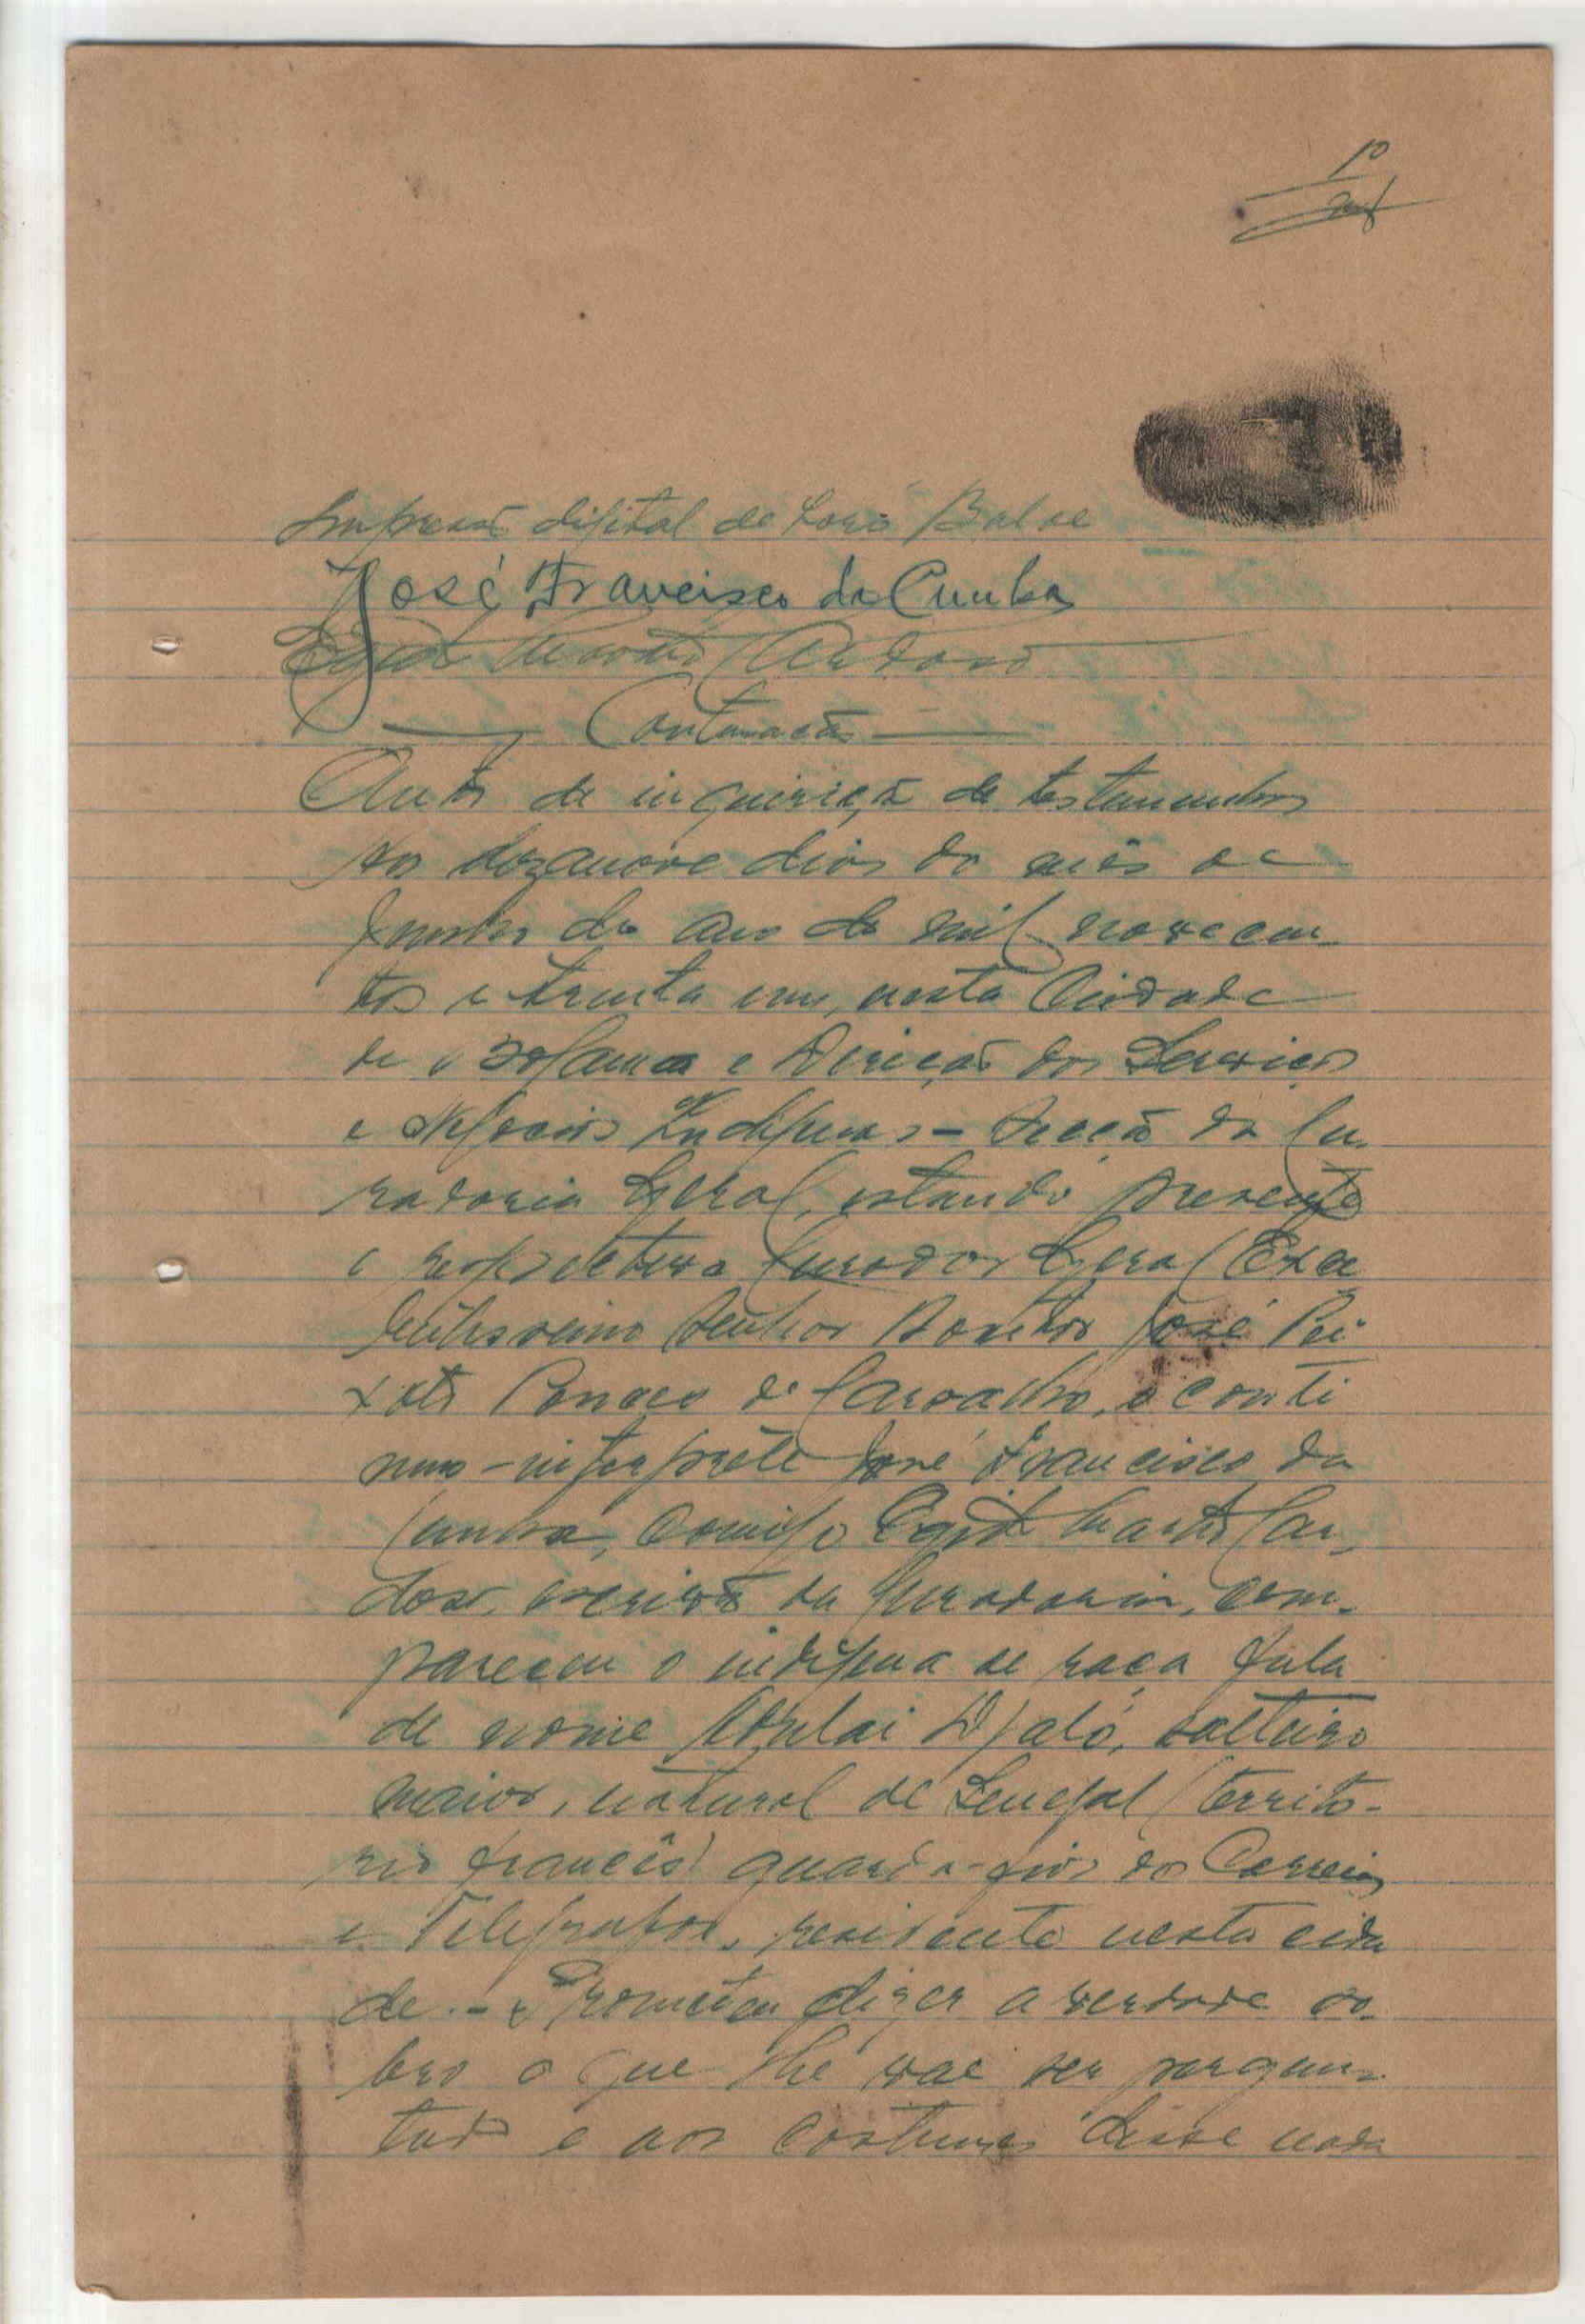 10
Impressão digital de Loró Balde
José Francisco da Cunha
Egidt Martins Cardoso
Continuação
Auto de inquirição de testamunhas
Aos dezanove dias do mês de
Junho do ano de mil novecen-
tos e trinta um, nesta Cidade
de Bolama e Direcção dos Serviços
e Negocios Indigenas - Secção da Cu-
radoria Geral, estando presente
o respectivo Curador Geral Exce
lentissimo Senhor Doutor José Pei-
xoto Ponces de Carvalho, o conti
nuo-interprete José Francisco da
Cunha, comigo Egidt Martins Car-
doso, escrivão da Curadoria, com-
pareceu o indigena de raça fula
de nome Adulai Djaló, solteiro
maior, natural de Senegal (territo-
rio francês) guarda-fios dos Correios
e Telegrafos, residente nesta cida
de. - Prometeu dizer a verdade so-
bre o que lhe vae ser pergun-
tado e aos costumes disse nada